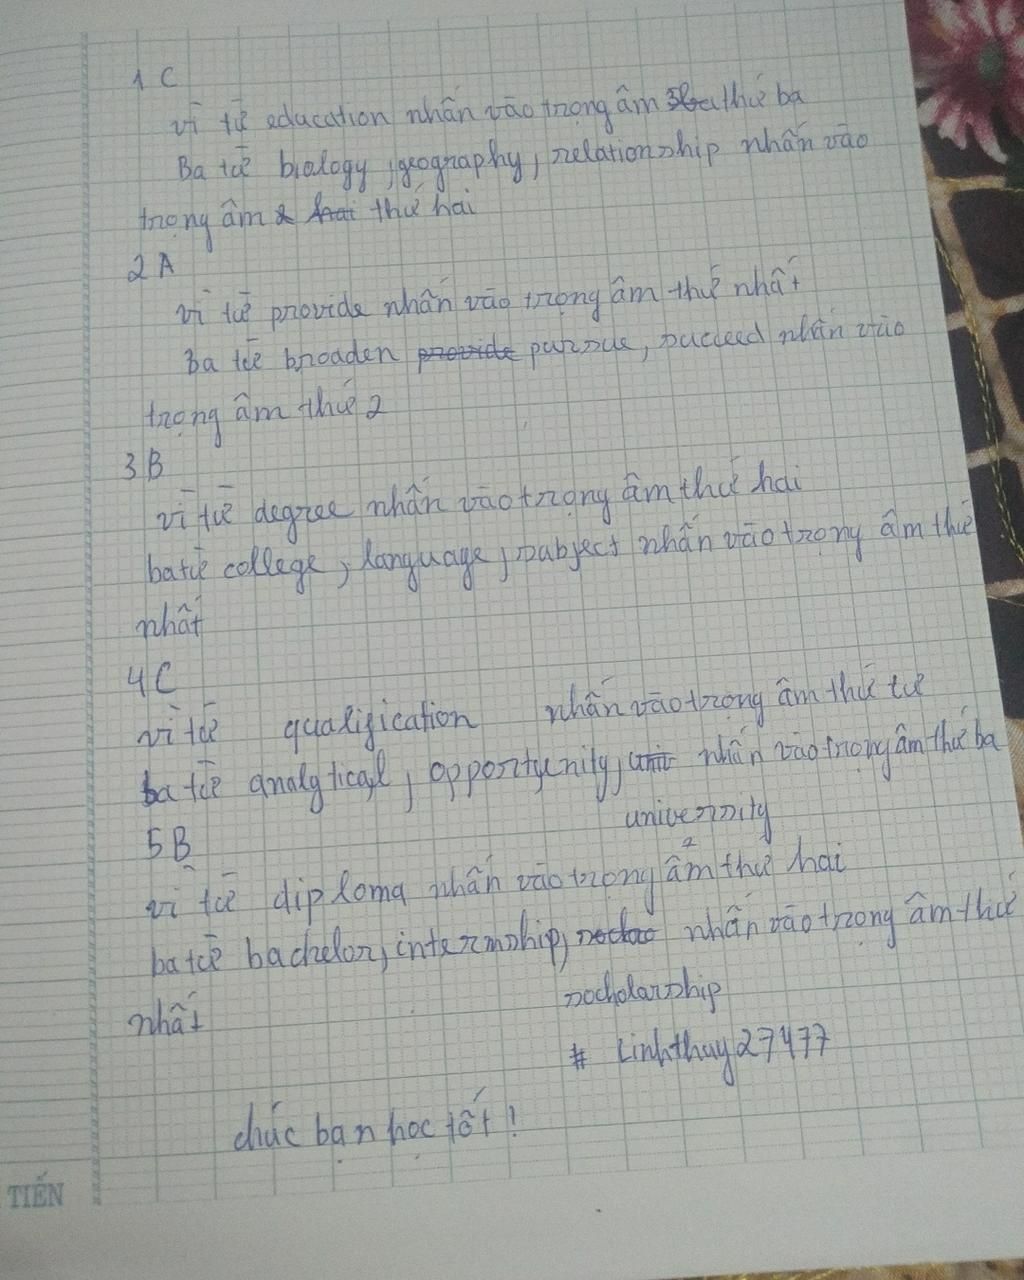 1 C
vì từ education nhấn vào trọng âm thứ ba
Ba từ biology, geography, relationship nhấn vào
trọng âm thứ hai
2 A
vì từ provide nhấn vào trọng âm thứ nhất
Ba từ broaden provide pursue, succeed nhấn vào
trọng âm thứ 2
3 B
vì từ degree nhấn vào trọng âm thứ hai
ba từ college, language, subject nhấn vào trọng âm thứ
nhất
4 C
vì từ qualification nhấn vào trọng âm thứ tư
ba từ analytical, opportyenity, nhấn vào trọng âm thứ ba
university
5 B
vì từ diploma nhấn vào trọng ẩm thứ hai
ba từ bachelor, internship, nhấn vào trọng âm thứ
socholarship
nhất
# Linhthuy27477
chúc bạn học tốt!
TIẾN